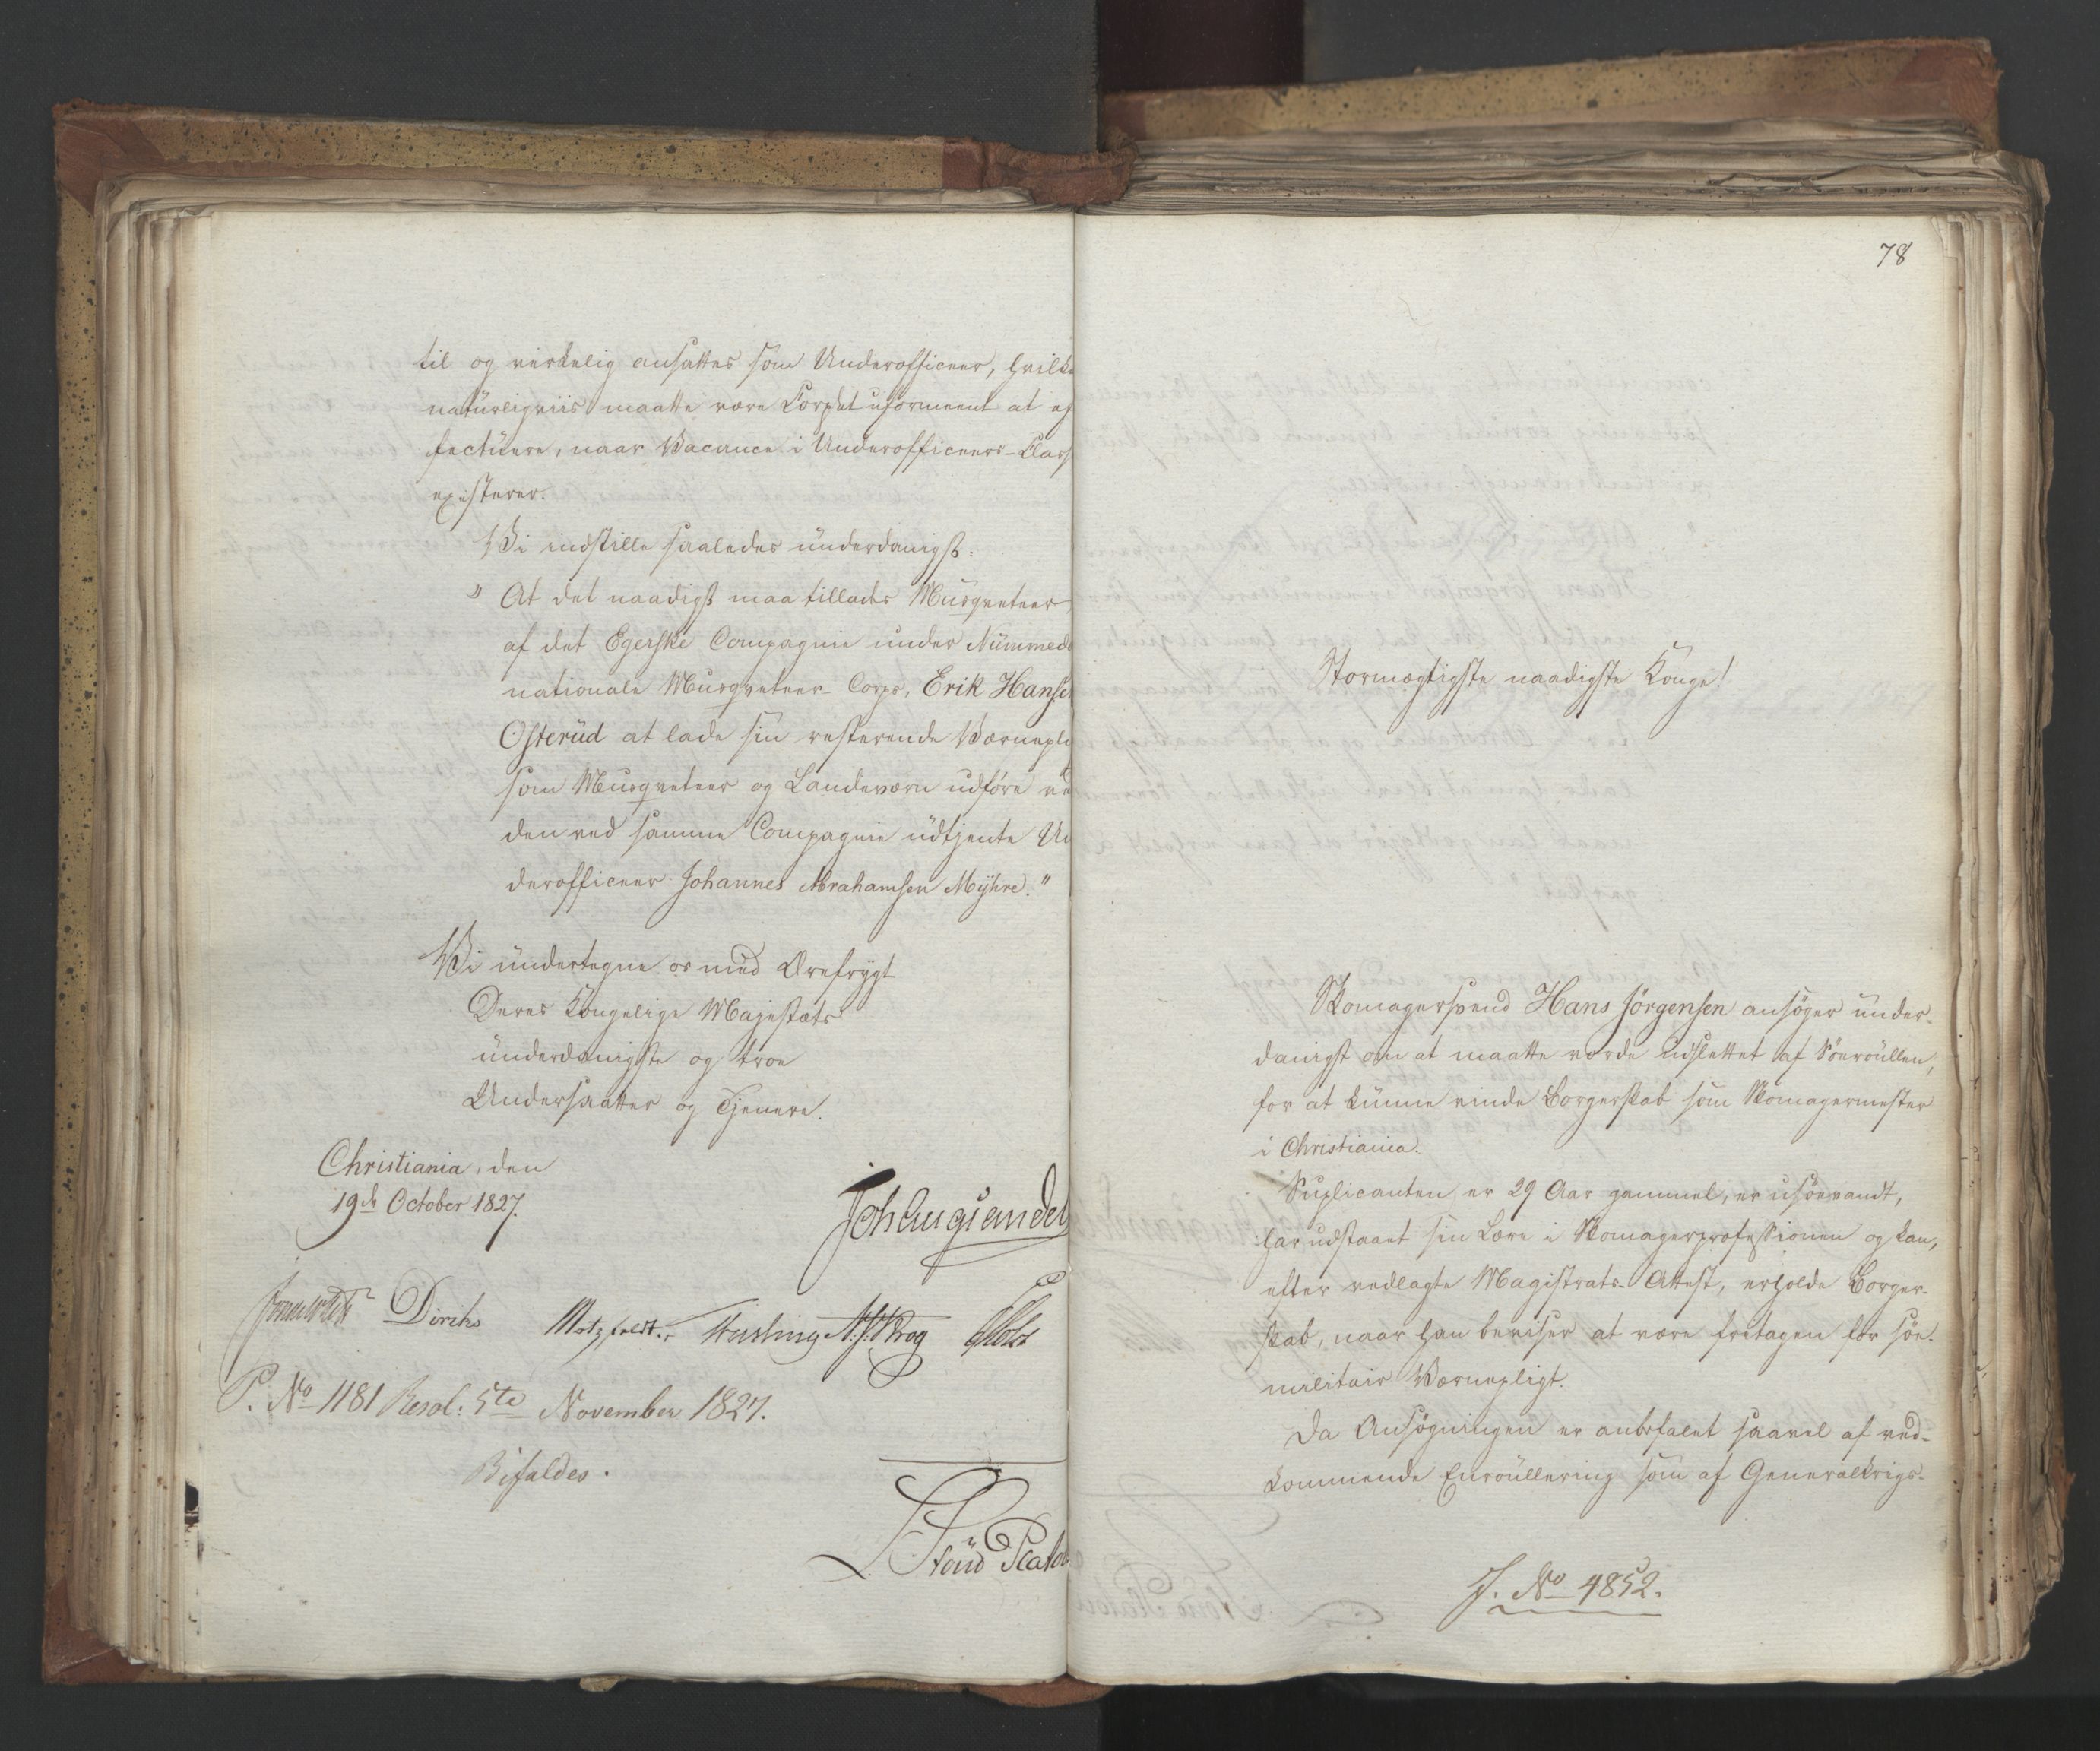 til og virkelig ansættes som Underofficeer, hvilke
natürligviis maatte være Corpset uformeent at ef
fectüere, naar Vacance i Underofficeers-Class
existerer.
Vi indstille saaledes ünderdanigst:
" At det naadigst maa tillades Musqueteer
af det Egerske Compagnie under Nümmeda
nationale Musqueteer-Corps, Erik Hanse
Osterüd at lade sin resterende Værnepli
som Musqueteer og Landeværn udføre ve
den ved samme Compagnie üdtjente Un
derofficeer Johannes Abrahamsen Mÿhre."
Vi ündertegne os med Ærefrÿgt
Deres Kongelige Majestæts
ünderdanigste og troe
Undersaatter og Tjenere.
Christiania, den
19de October 1827.
Joh Aug Sandel
Diriks
Motzfeldt.
N. J. Krog
P. No 1181 Resol: 5te November 1827.
Bifaldes.
78
Stormægtigste naadigste Konge!
Skomagersvend Hans Jörgensen ansöger ünder-
danigst om at maatte vorde üdslettet af Söeroüllen,
for at künne vinde Borgerskab som Skomagermester
i Christiania.
Suplicanten er 29 Aar gammel, er usöevandt,
har udstaaet sin Lære i Skomagerprofessionen og kan,
efter vedlagte Magistrats-Attest, erholde Borger-
skab, naar han beviser at være fritagen for söe-
militair Værnepligt.
Da Ansögningen er anbefalet saavel af ved-
kommende Enroüllering som af Generalkrigs-
J. No 4852.